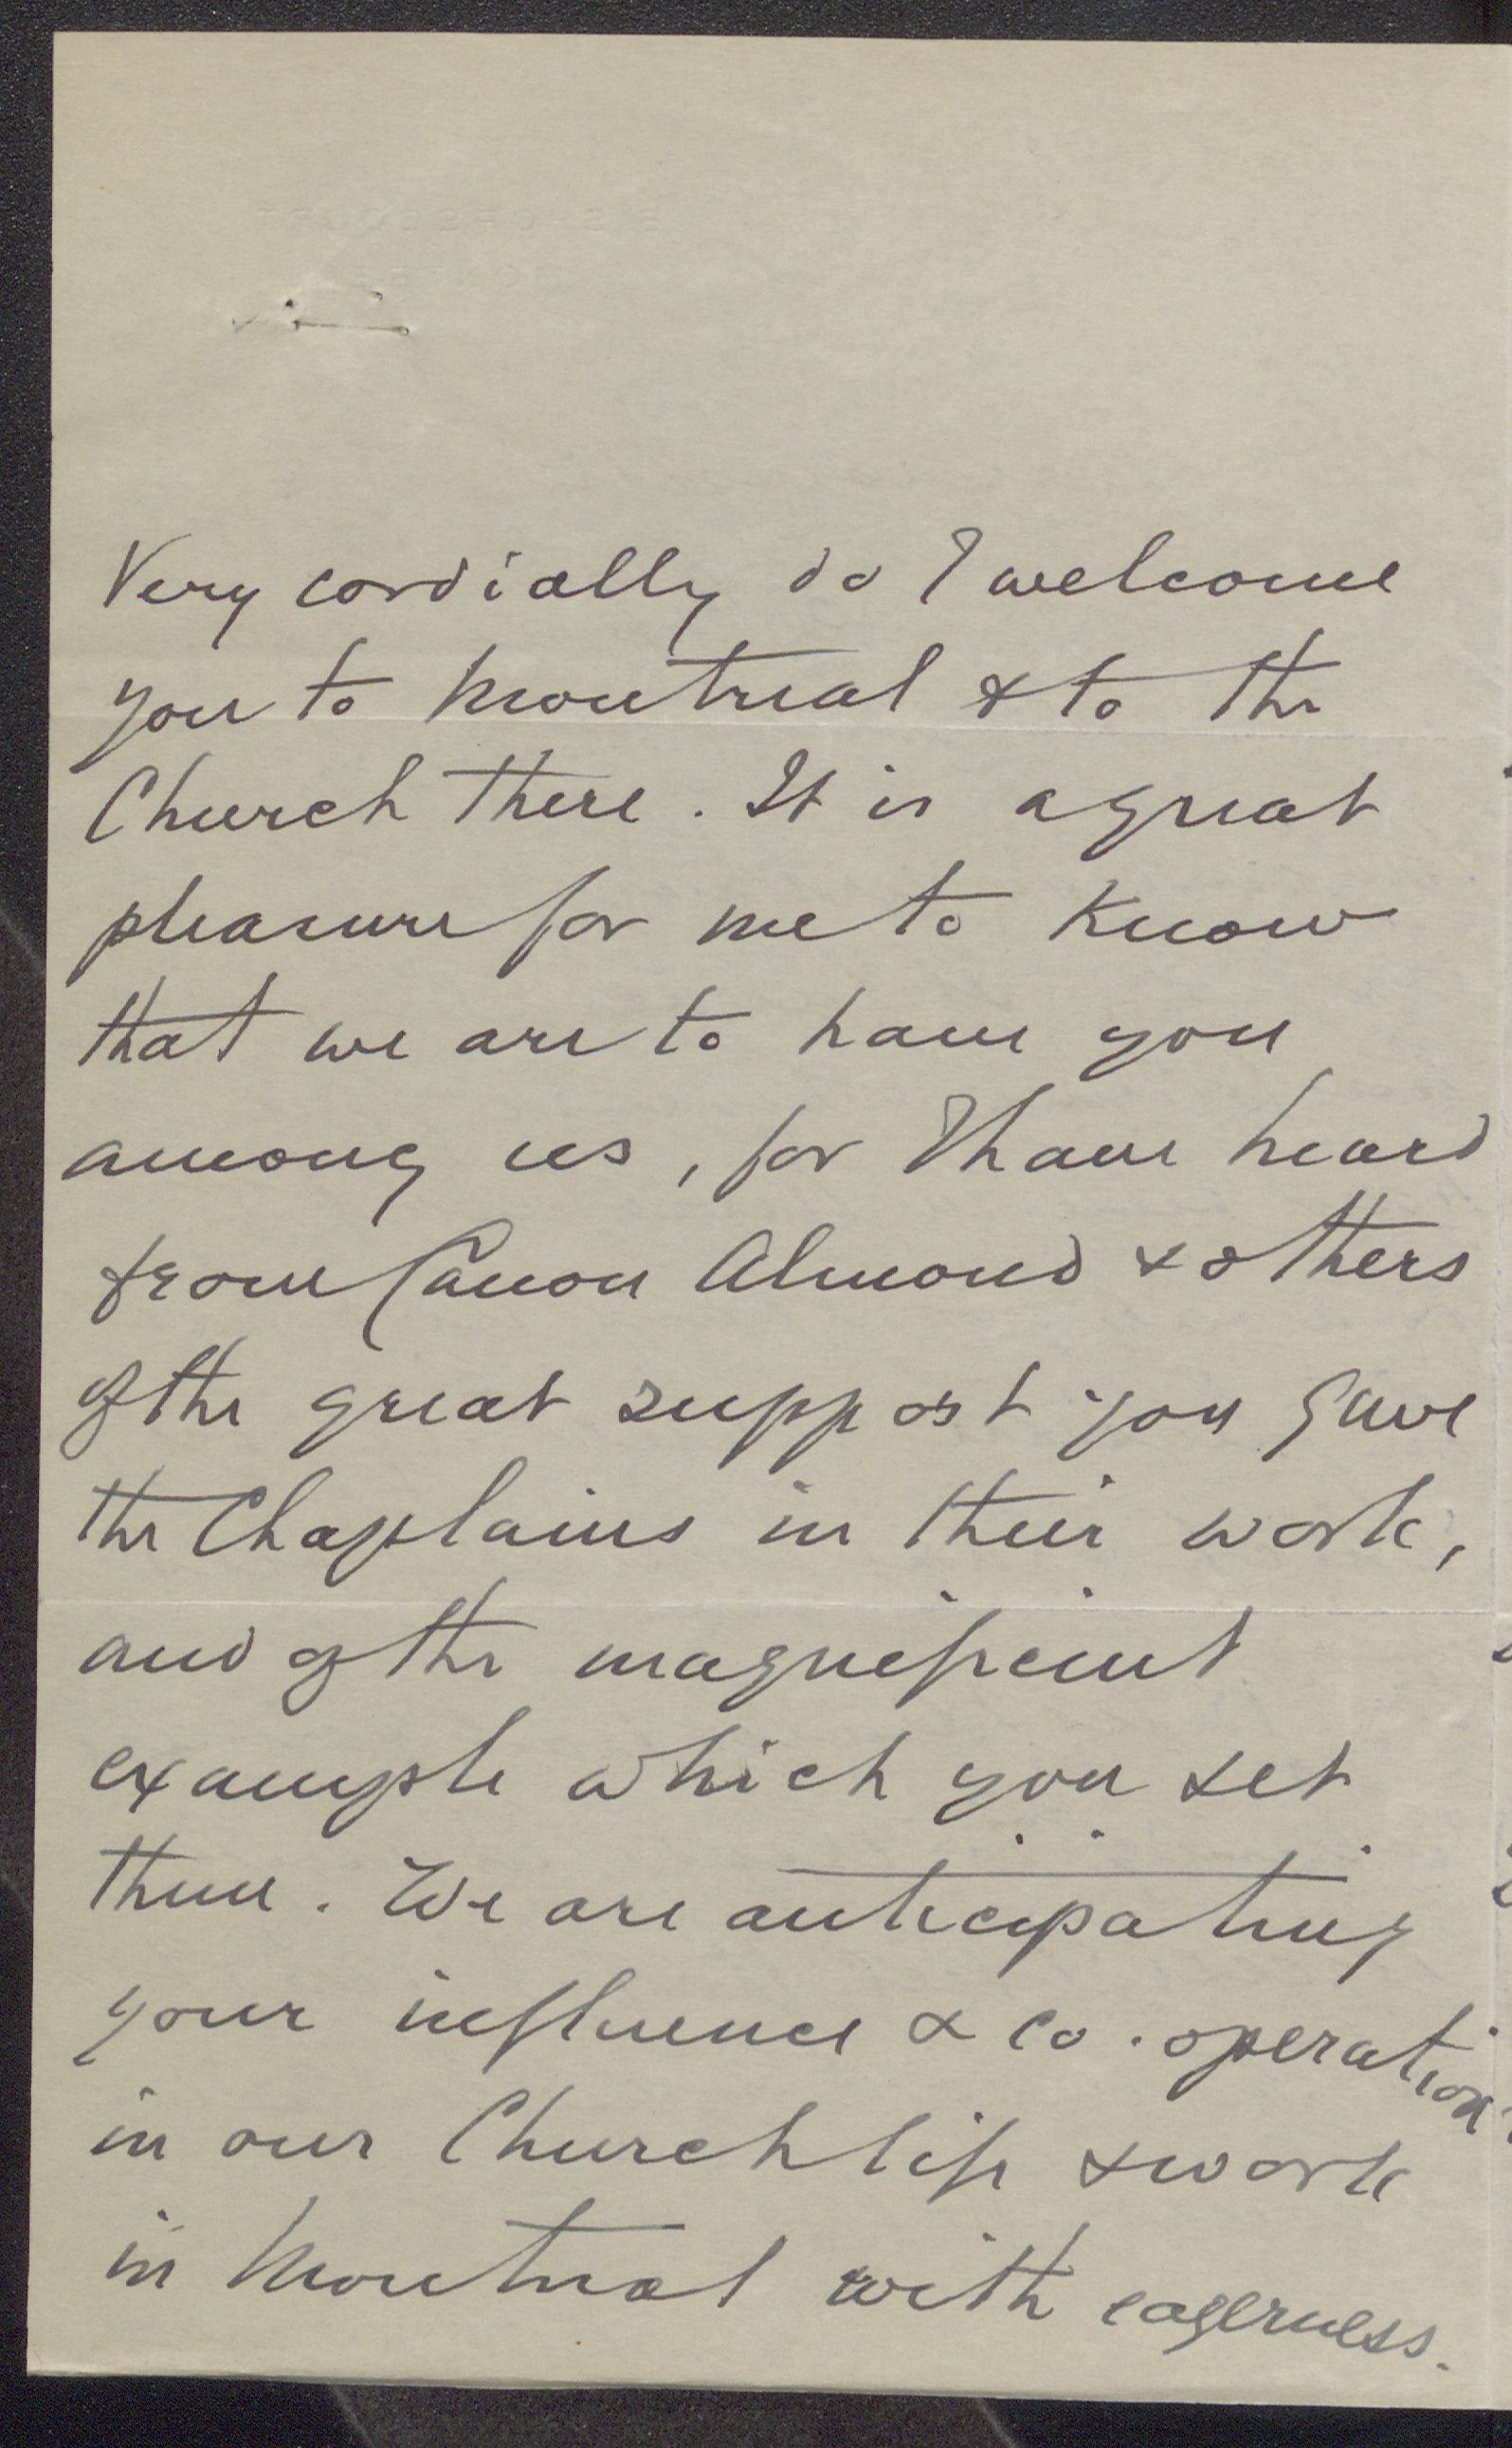 Very cordially do I welcome
you to Montreal & to the
Church there. It is a great
pleasure for me to know
that we are to have you
among us, for I have heard
from Canon Almond & others
of the great support you gave
the Chaplains in their work,
and of the magnificent
example which you set
them. We are anticipating
your influence & co-operation
in our Church life & work
in Montreal with eagerness.